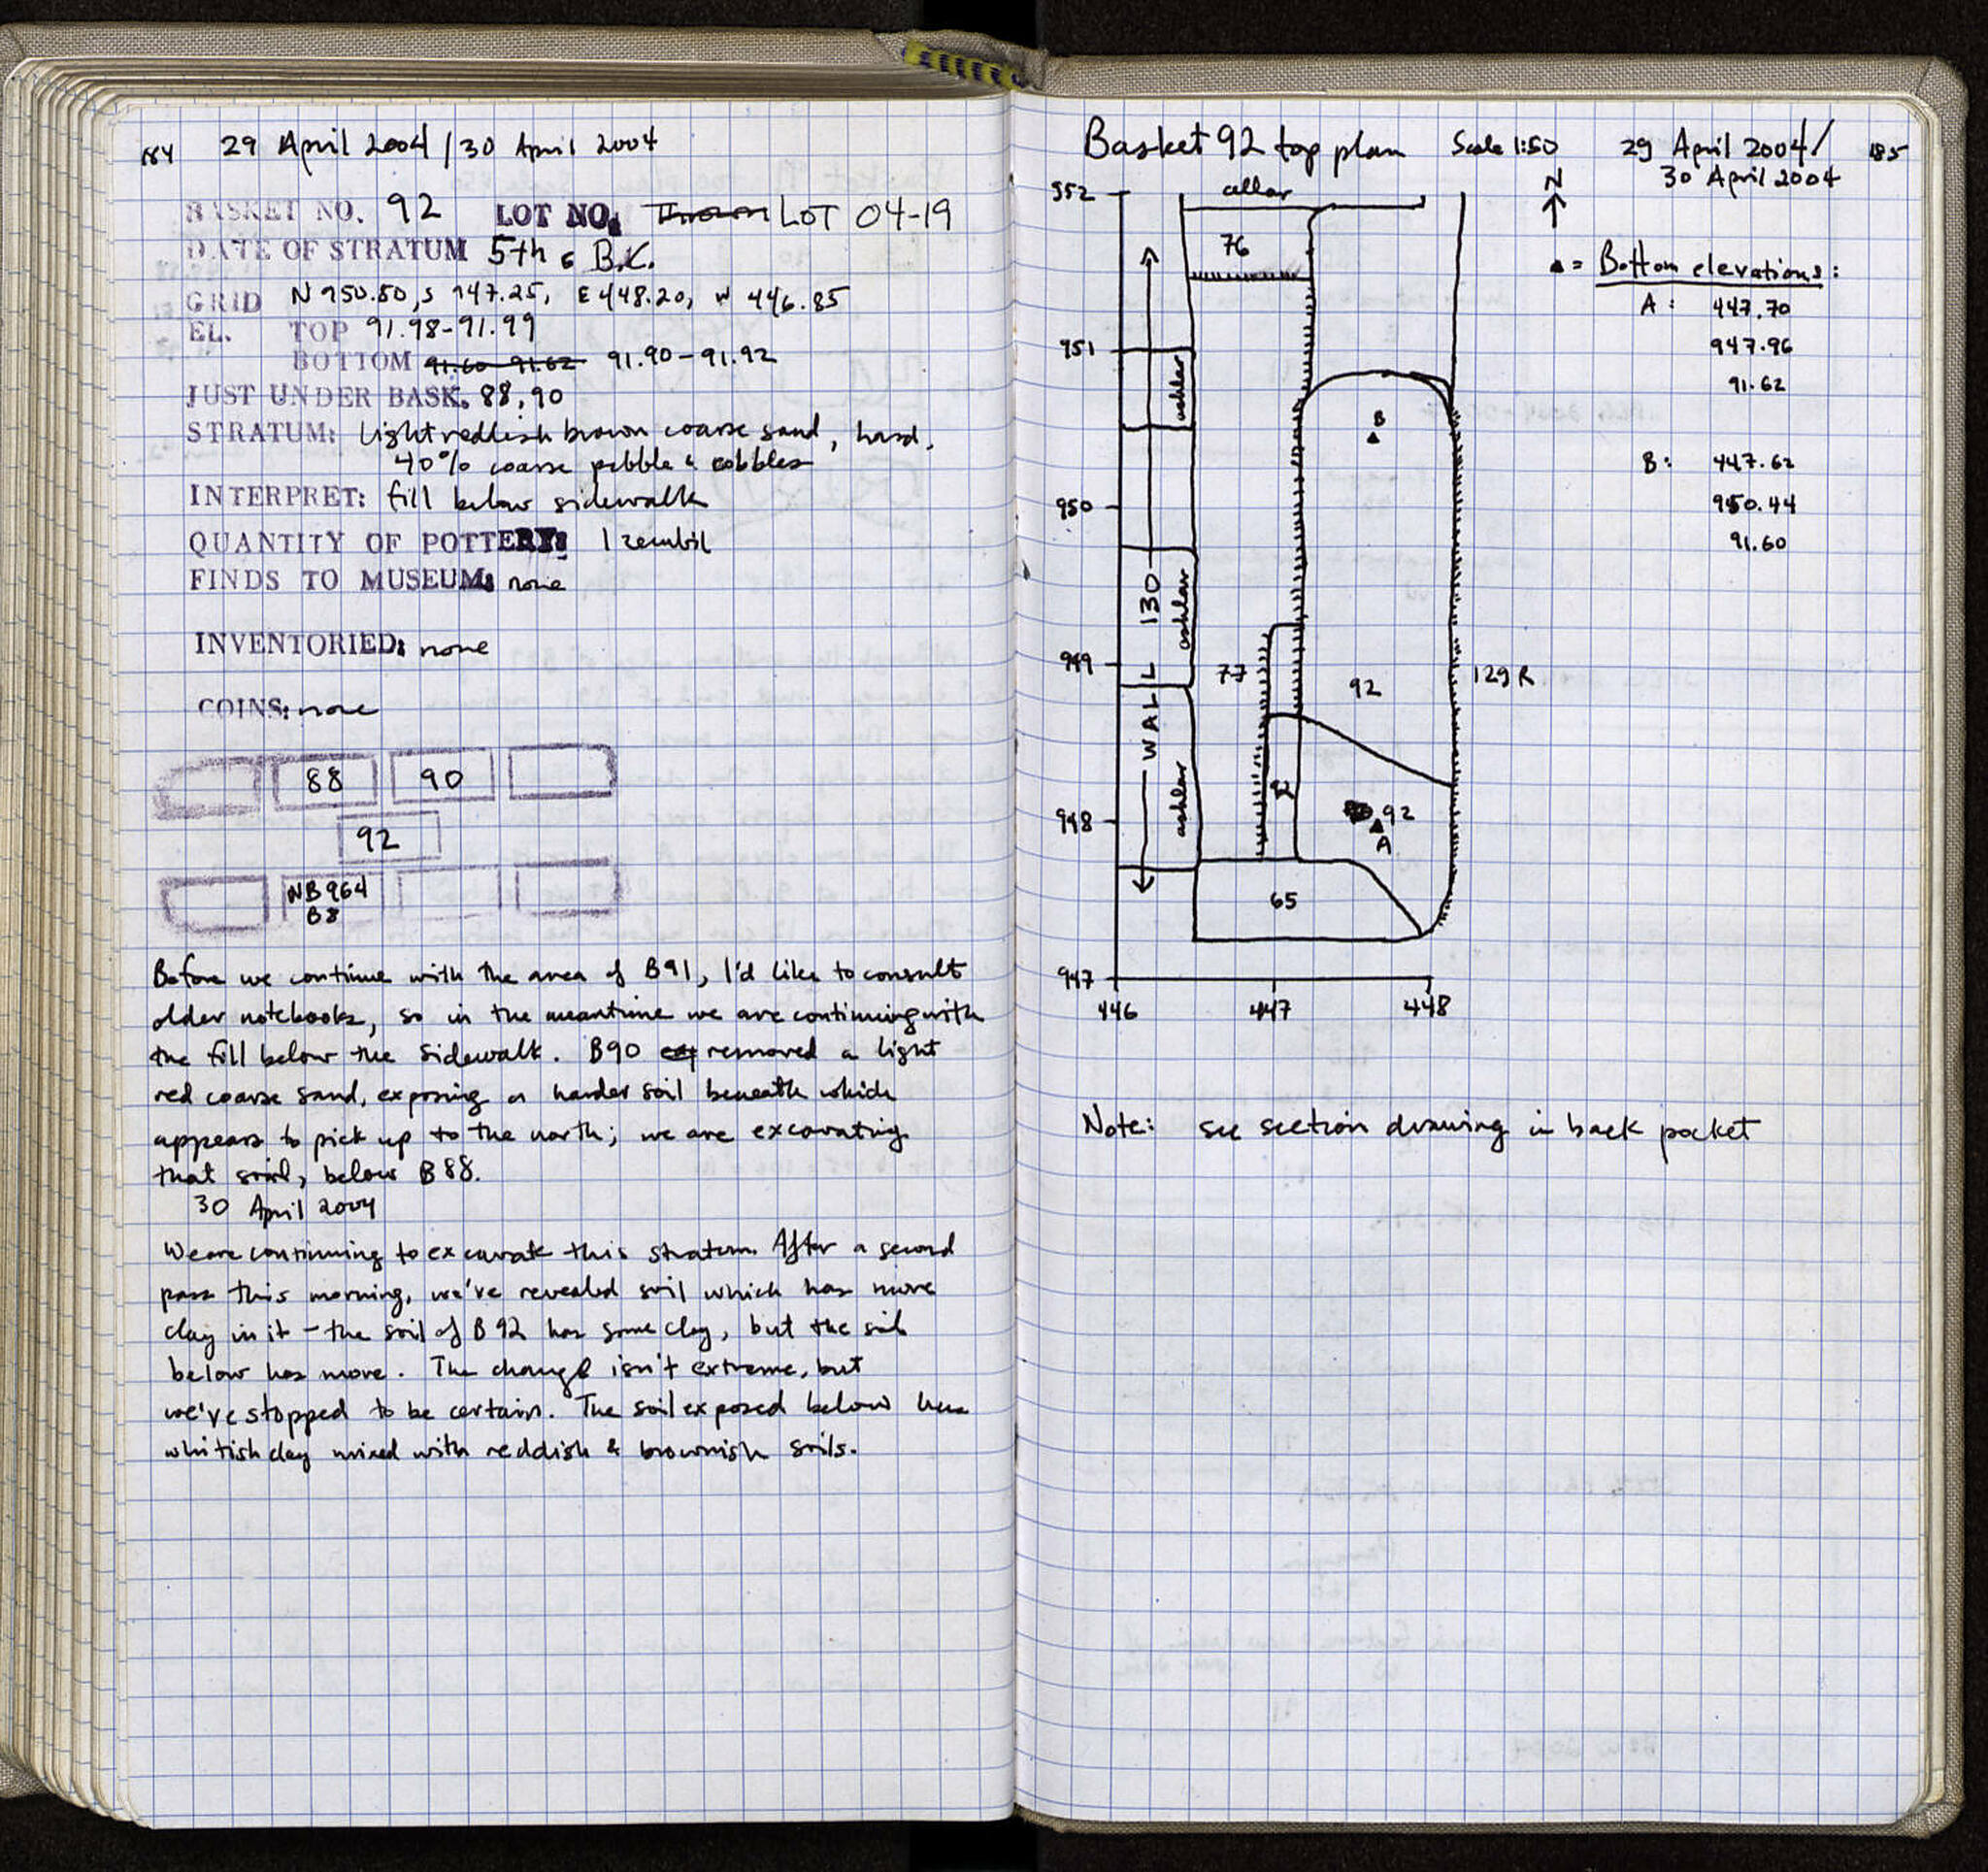 184 29 April 2004/30 April 2004
BASKET NO. 92 LOT NO. LOT 04-19
DATE OF STRATUM 5th c B.C.
GRID N 950.80, S 947.25, E 448.20, W 446.85
EL. TOP 91.98-91.99
BOTTOM 91.60-91.62 91.90-91.92
JUST UNDER BASK. 88, 90
STRATUM: light reddish brown coarse sand, hard.
40% coarse pebble & cobbles
INTERPRET: fill below sidewalk
QUANTITY OF POTTERY: 1 zembil
FINDS TO MUSEUM: none
INVENTORIED: none
COINS: none
88 90
92
NB 964
B8
Before we continue with the area of B91, I'd like to consult
older notebooks, so in the meantime we are continuing with
the fill below the sidewalk. B90 removed a light
red coarse sand, exposing a harder soil beneath which
appears to pick up to the north; we are excavating
that soil, below B88.
30 April 2004
We are continuing to excavate this stratum. After a second
pass this morning, we've revealed soil which has more
clay in it - the soil of B92 has some clay, but the soil
below has more. The change isn't extreme, but
we've stopped to be certain. The soil exposed below has
whitish clay mixed with reddish & brownish soils.
Basket 92 top plan Scale 1:50 29 April 2004/ 185
30 April 2004
N
952
76
951
ashlar
B
950
WALL 130
ashlar
949
77
92
129 R
92
948
ashlar
92
A
65
947
446 447 448
▲ = Bottom elevations:
A: 447.70
947.96
91.62
B: 447.62
950.44
91.60
Note: see section drawing in back pocket